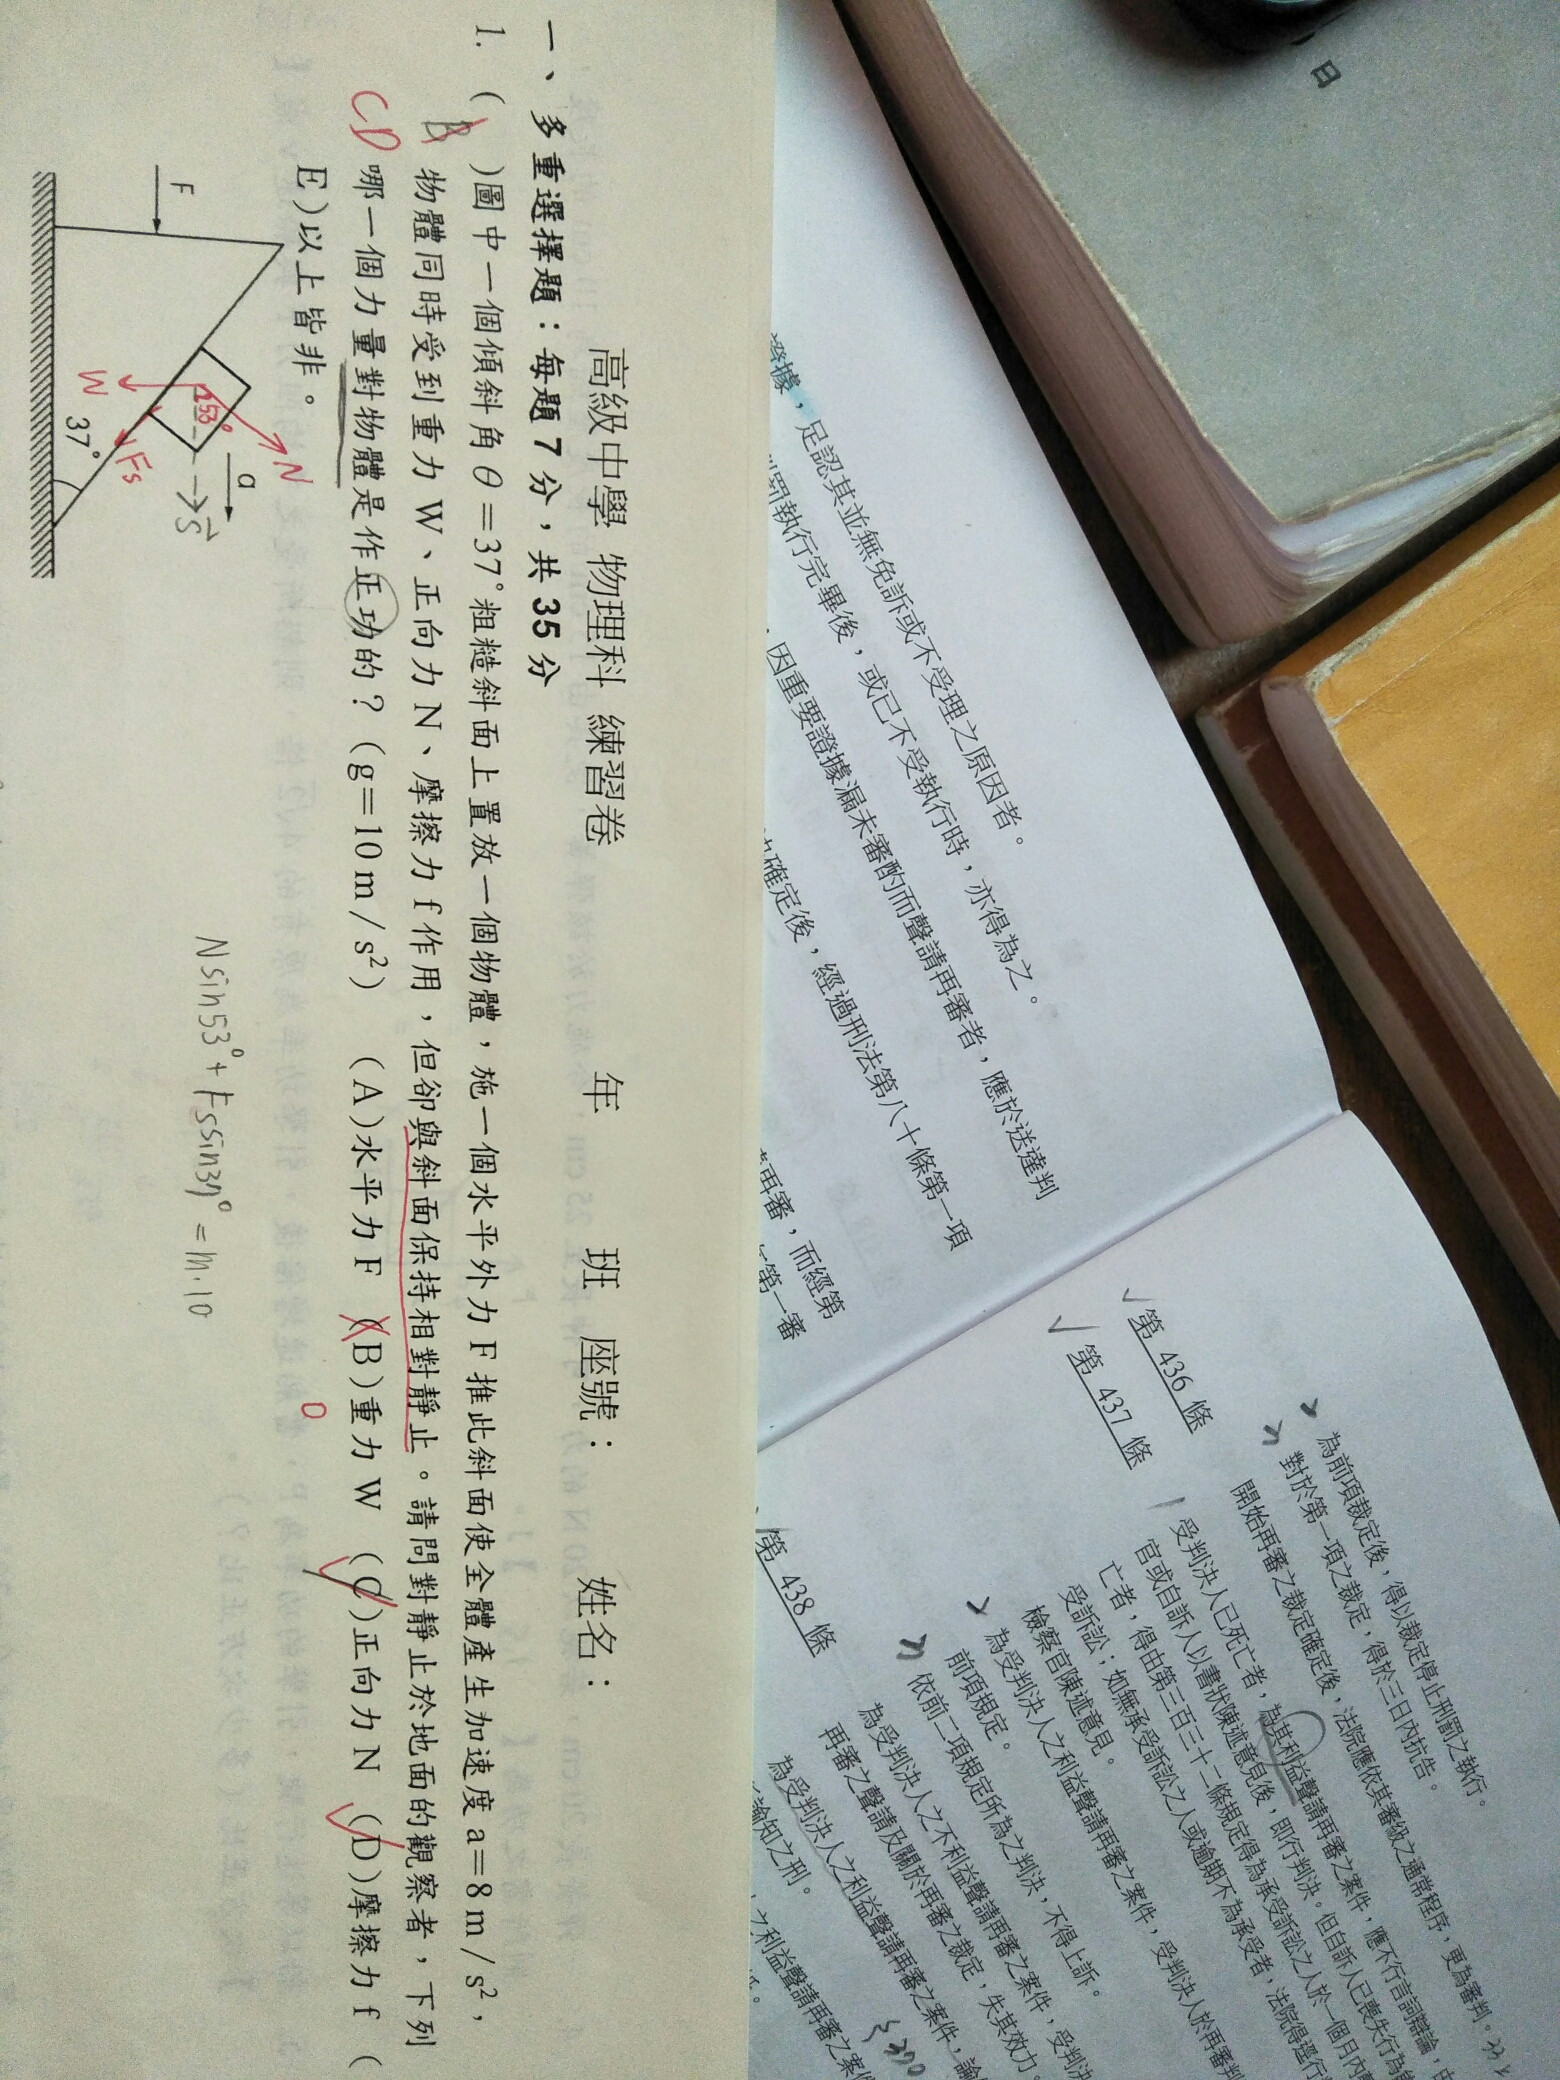 高級中學 物理科 練習卷 年 班 座號： 姓名：
一、多重選擇題：每題7分，共35分
1. ( B )圖中一個傾斜角θ＝37°粗糙斜面上置放一個物體，施一個水平外力F推此斜面使全體產生加速度a＝8m/s²，
CD
物體同時受到重力W、正向力N、摩擦力f作用，但卻與斜面保持相對靜止。請問對靜止於地面的觀察者，下列
哪一個力量對物體是作正功的？(g＝10m/s²) (A)水平力F (B)重力W (C)正向力N (D)摩擦力f (
0
E)以上皆非。
F
a
N
53°
W
Fs
S
37°
Nsin53°+Fssin37°=m·10
日
證據，足認其並無免訴或不受理之原因者。
刑罰執行完畢後，或已不受執行時，亦得為之。
因重要證據漏未審酌而聲請再審者，應於送達判
確定後，經過刑法第八十條第一項
再審，而經第
第一審
第 436 條
第 437 條
第 438 條
為前項裁定後，得以裁定停止刑罰之執行。
對於第一項之裁定，得於三日內抗告。
開始再審之裁定確定後，法院應依其審級之通常程序，更為審判。
受判決人已死亡者，為其利益聲請再審之案件，應不行言詞辯論，由
官或自訴人以書狀陳述意見後，即行判決。但自訴人已喪失行為能
亡者，得由第三百三十二條規定得為承受訴訟之人於一個月內
受訴訟；如無承受訴訟之人或逾期不為承受者，法院得逕行
檢察官陳述意見。
為受判決人之利益聲請再審之案件，受判決人於再審判
前項規定。
依前二項規定所為之判決，不得上訴。
為受判決人之不利益聲請再審之案件，受判決
再審之聲請及關於再審之裁定，失其效力。
為受判決人之利益聲請再審之案件，諭
諭知之刑。
之利益聲請再審之案